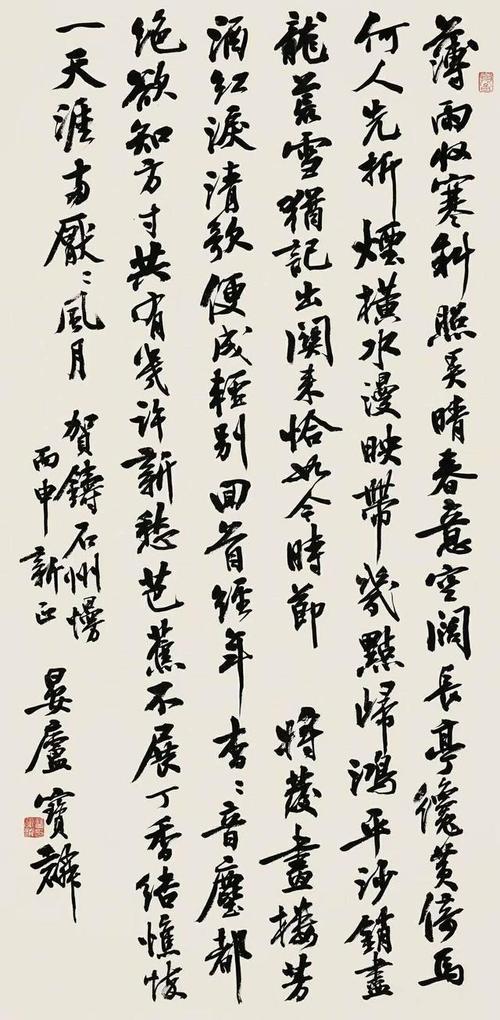 薄雨收寒斜照弄晴春意空闊長亭纔黄倚馬
何人先折煙橫水漫映帶幾點歸鴻平沙銷盡
龍荒雪猶記出關來恰如今時節 將發畫樓芳
酒紅淚清歌便成輕別回首經年杳〻音塵都
絕欲知方寸共有幾許新愁芭蕉不展丁香結憔悴
一天涯兩厭〻風月
賀鑄石州慢
丙申新正
晏廬寶麟